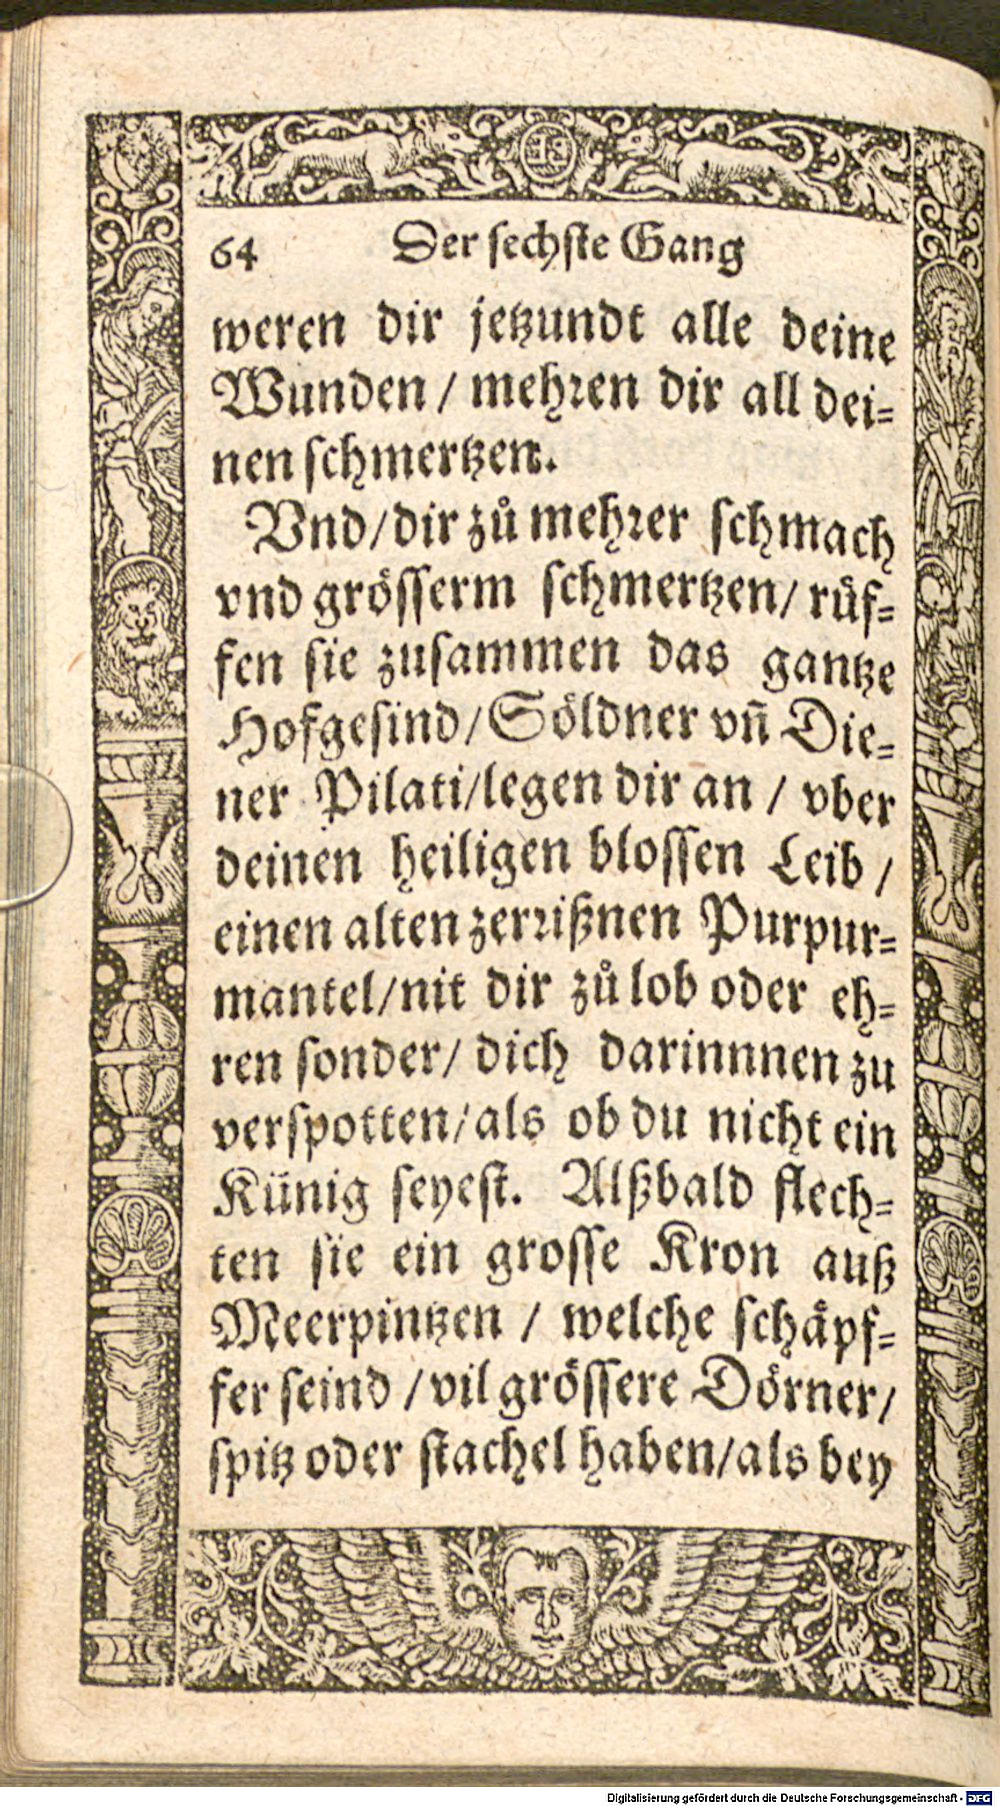 64 Der sechste Gang
weren dir jetzundt alle deine
Wunden / mehren dir all dei-
nen schmertzen.
Vnd / dir zů mehrer schmach
vnd grösserm schmertzen / růf-
fen sie zusammen das gantze
Hofgesind / Söldner vñ Die-
ner Pilati / legen dir an / vber
deinen heiligen blossen Leib /
einen alten zerrißnen Purpur-
mantel / nit dir zů lob oder eh-
ren sonder / dich darinnnen zu
verspotten / als ob du nicht ein
Künig seyest. Alßbald flech-
ten sie ein grosse Kron auß
Meerpintzen / welche schäpf-
fer seind / vil grössere Dörner /
spitz oder stachel haben / als bey
Digitalisierung gefördert durch die Deutsche Forschungsgemeinschaft - DFG